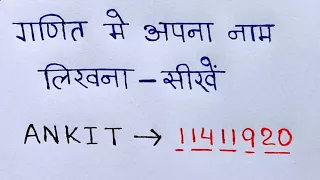 गणित मे अपना नाम
लिखना - सीखें
ANKIT → 11411920